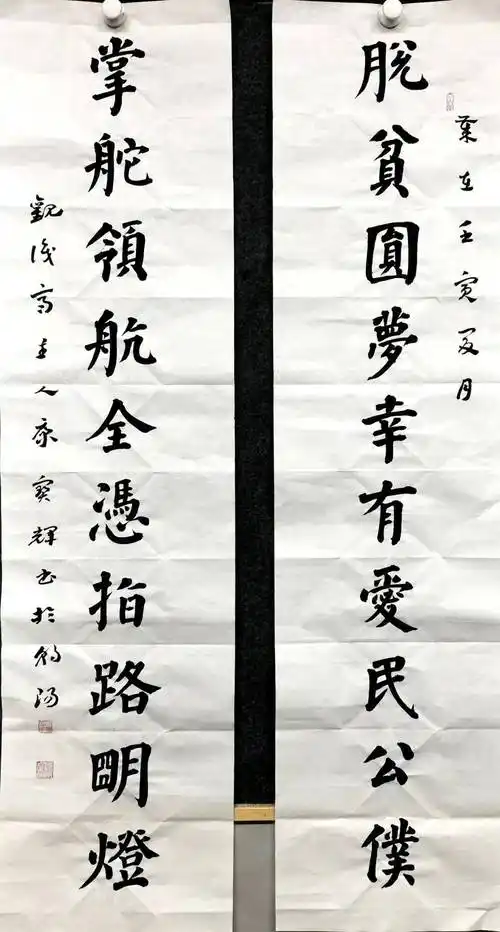 歲在壬寅夏月
脫貧圓夢幸有愛民公僕
掌舵領航全憑指路明燈
觀齋主人康寶輝書於